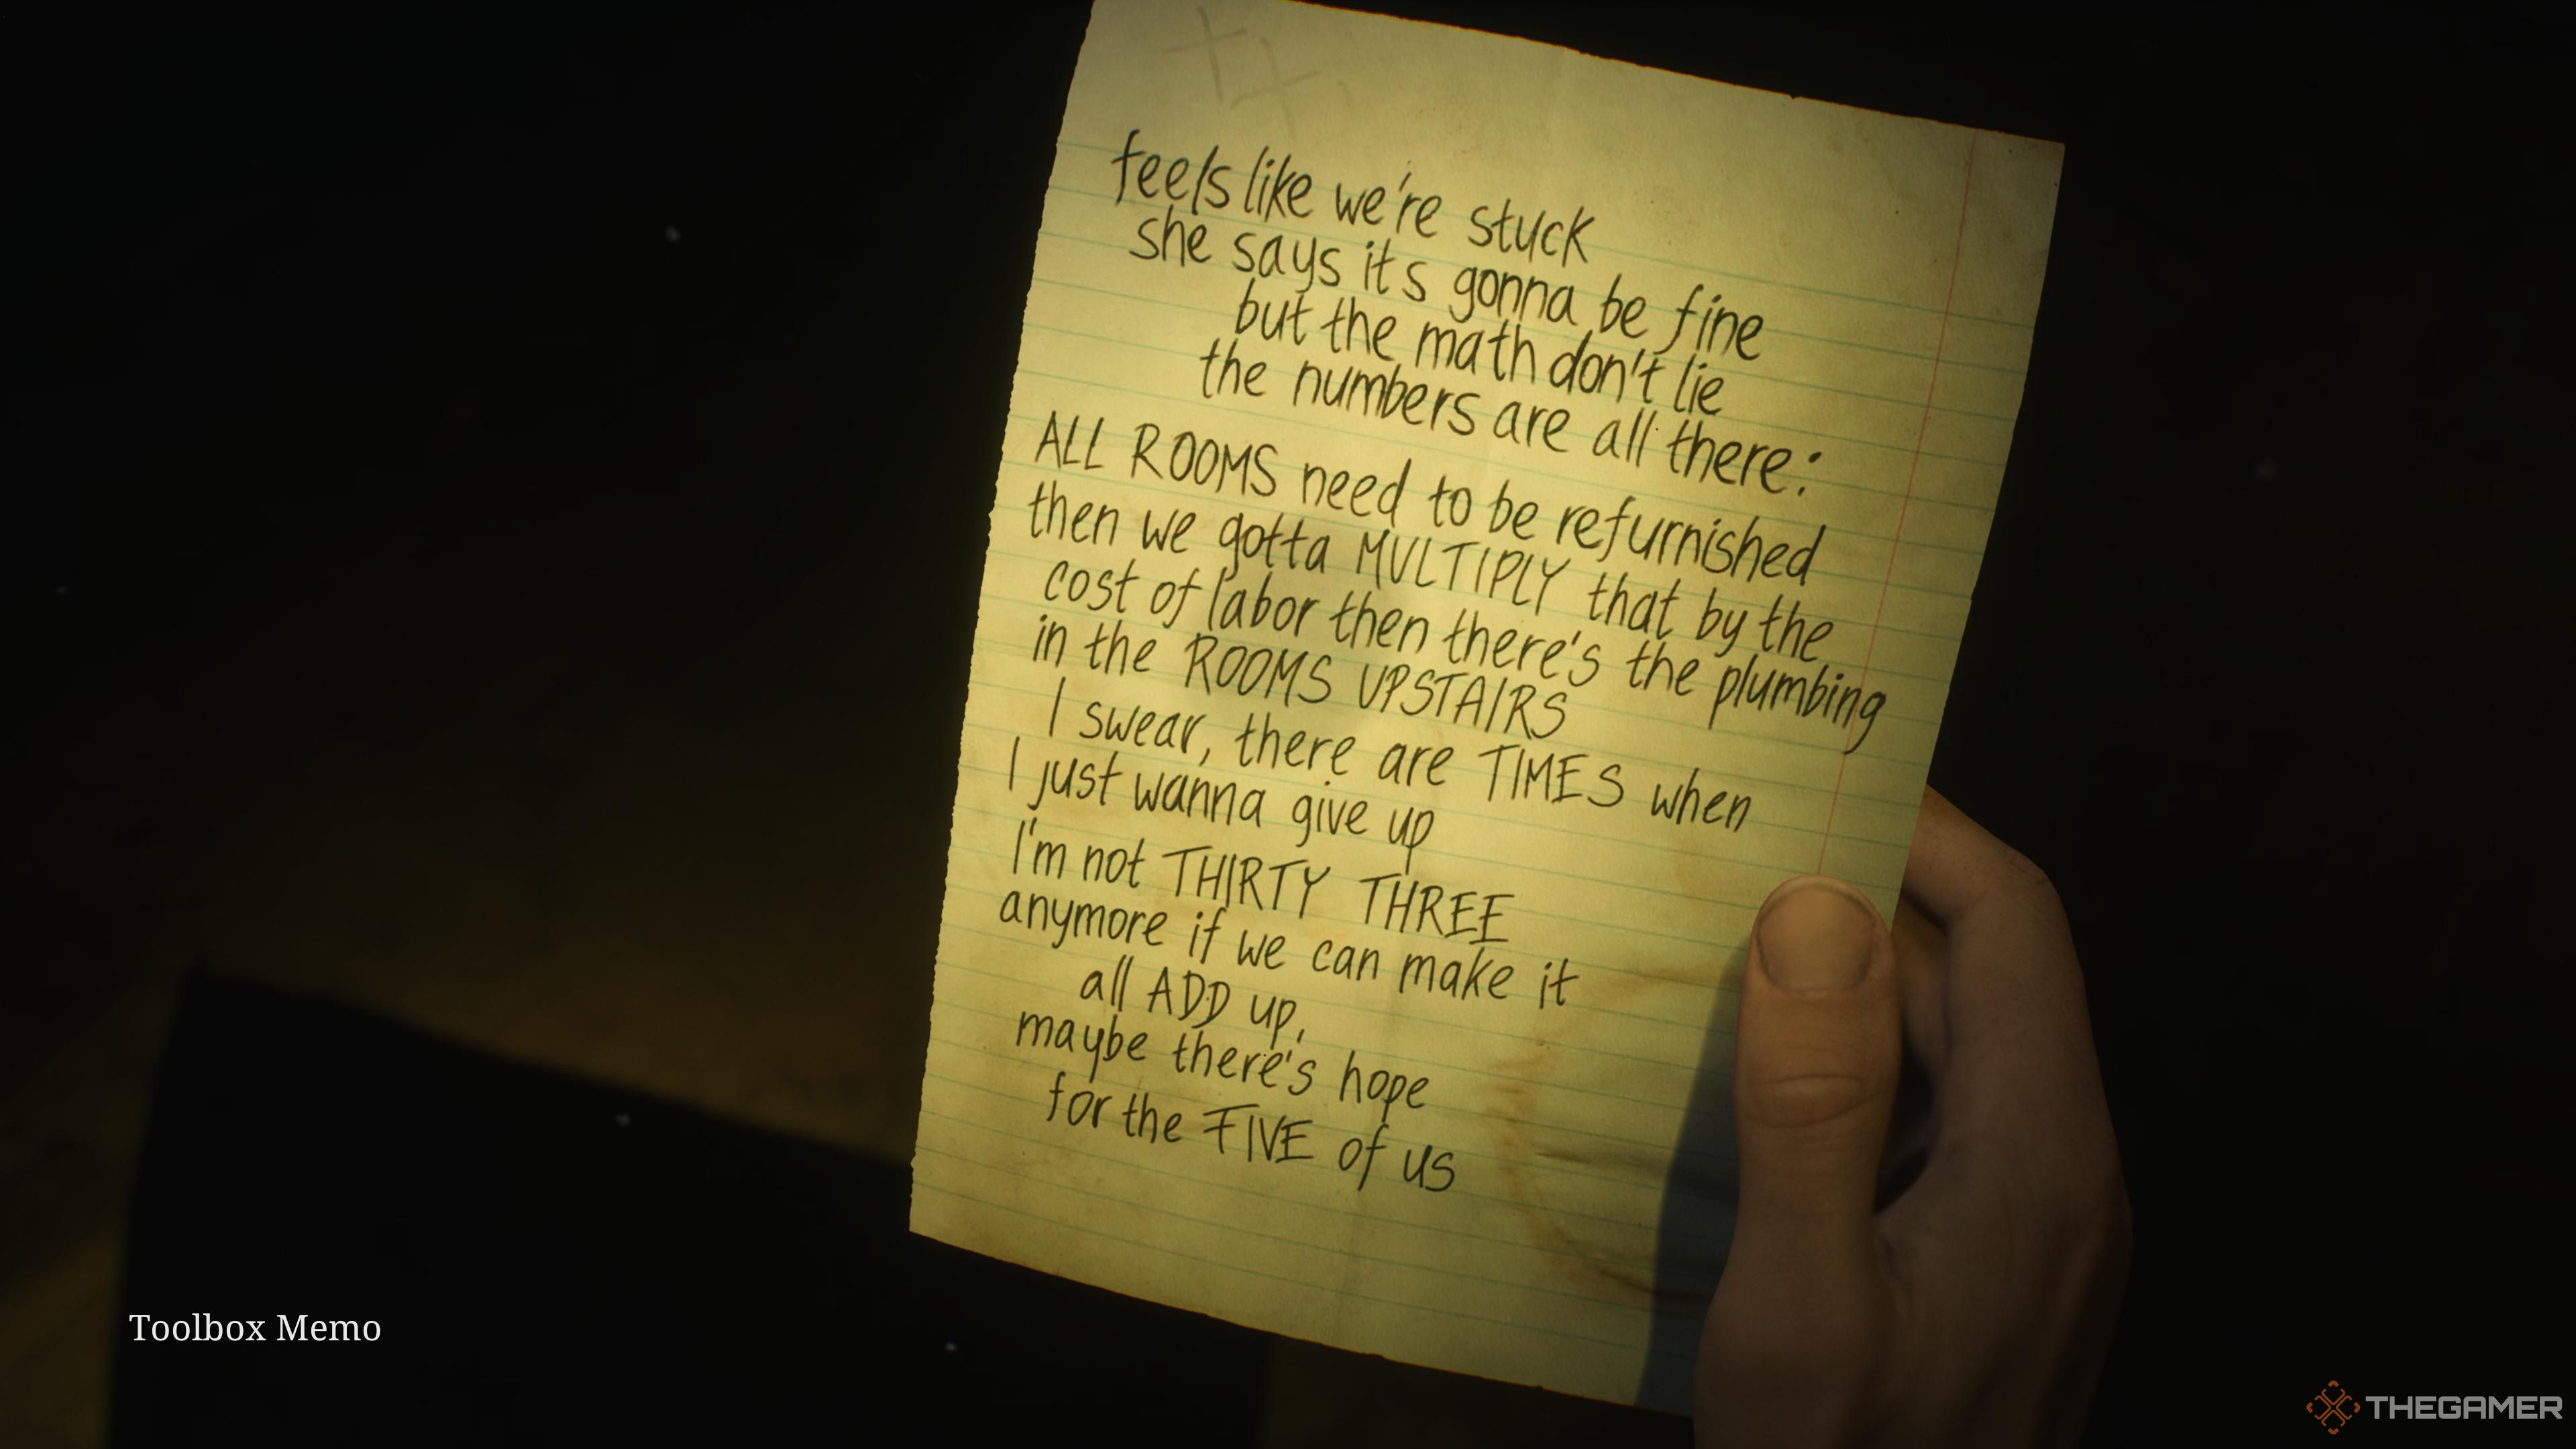 feels like we're stuck
she says its gonna be fine
but the math don't lie
the numbers are all there:
ALL ROOMS need to be refurnished
then we gotta MULTIPLY that by the
cost of labor then there's the plumbing
in the ROOMS UPSTAIRS
I swear, there are TIMES when
I just wanna give up
I'm not THIRTY THREE
anymore if we can make it
all ADD up,
maybe there's hope
for the FIVE of us
Toolbox Memo
THEGAMER